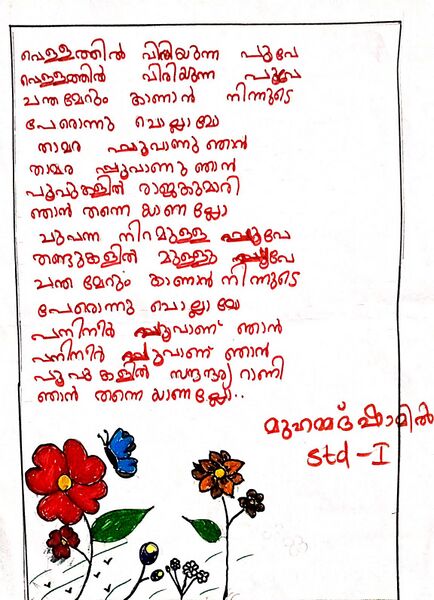 വെള്ളത്തിൽ വിരിയുന്ന പൂവേ
വെള്ളത്തിൽ വിരിയുന്ന പൂവേ
ചന്തമേറും കാണാൻ നിന്നുടെ
പേരൊന്നു ചൊല്ലാമോ
താമര പൂവാണു ഞാൻ
താമര പൂവാണു ഞാൻ
പൂവുകളിൽ രാജകുമാരി
ഞാൻ തന്നെയാണല്ലോ
ചുവന്ന നിറമുള്ള പൂവേ
തണ്ടുകളിൽ മുള്ളുള്ള പൂവേ
ചന്തമേറും കാണാൻ നിന്നുടെ
പേരൊന്നു ചൊല്ലാമോ
പനിനീർ പൂവാണ് ഞാൻ
പനിനീർ പൂവാണ് ഞാൻ
പൂവുകളിൽ റാണി
ഞാൻ തന്നെയാണല്ലോ..
മുഹമ്മദ് ഷാമിൽ
std - I